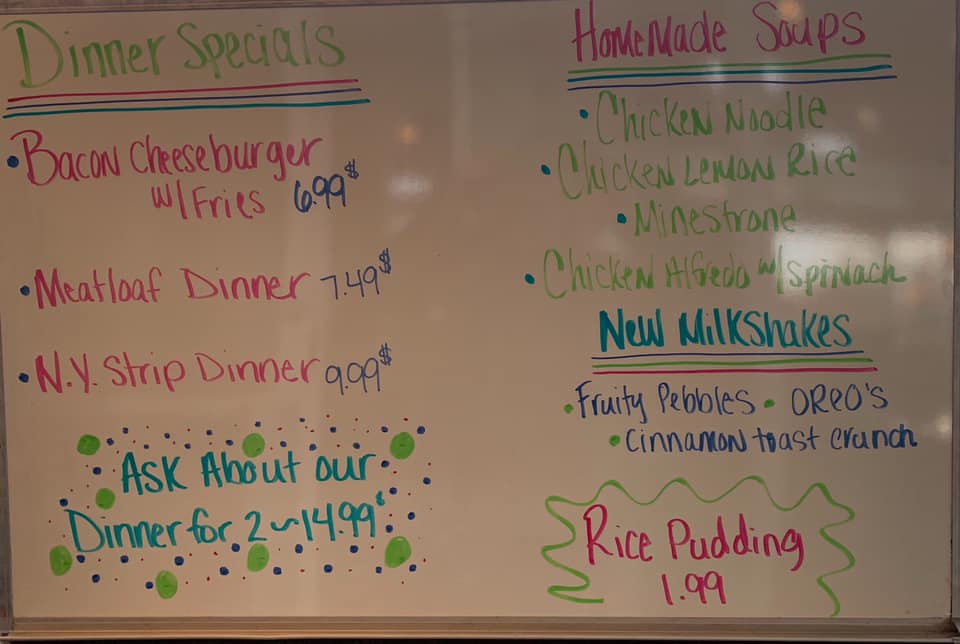 Dinner Specials
• Bacon Cheeseburger
w/Fries 6.99$
• Meatloaf Dinner 7.49$
• N.Y. Strip Dinner 9.99$
Ask About our
Dinner for 2 ~ 14.99$
HomeMade Soups
• Chicken Noodle
• Chicken Lemon Rice
• Minestrone
• Chicken Alfredo w/spinach
New Milkshakes
• Fruity Pebbles • OREO'S
• cinnamon toast crunch
Rice Pudding
1.99